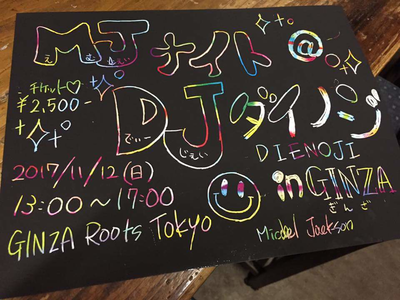 MJナイト@
えむ じぇい
チケット♡
¥2,500-
DJダイノジ
でぃー じぇい
DIENOJI
2017/11/12(日)
in GINZA
ぎんざ
13:00～17:00
GINZA Roots Tokyo
Michael Jackson